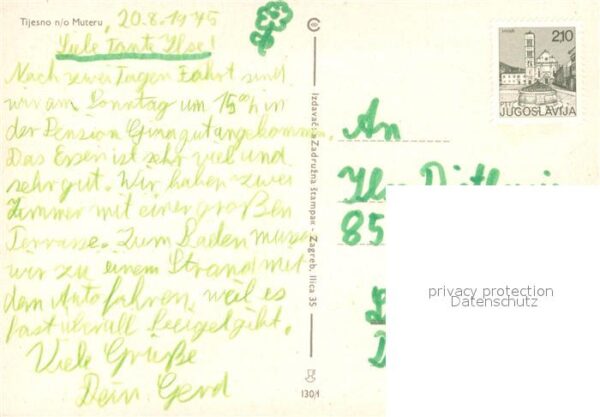 Tijesno n/o Muteru
20.8.1975
Liebe Tante Ilse!
Nach zwei Tagen Fahrt sind
wir am Sonntag um 15 00 h in
der Pension Gina gut angekommen.
Das Essen ist sehr viel und
sehr gut. Wir haben zwei
Zimmer mit einer großen
Terrasse. Zum Baden müssen
wir zu einem Strand mit
dem Auto fahren, weil es
fast überall Seeigel gibt.
Viele Grüße
Dein Gerd
Izdavač: Zadružna štampa - Zagreb, Ilica 35
130/1
2,10
JUGOSLAVIJA
An
85
privacy protection
Datenschutz